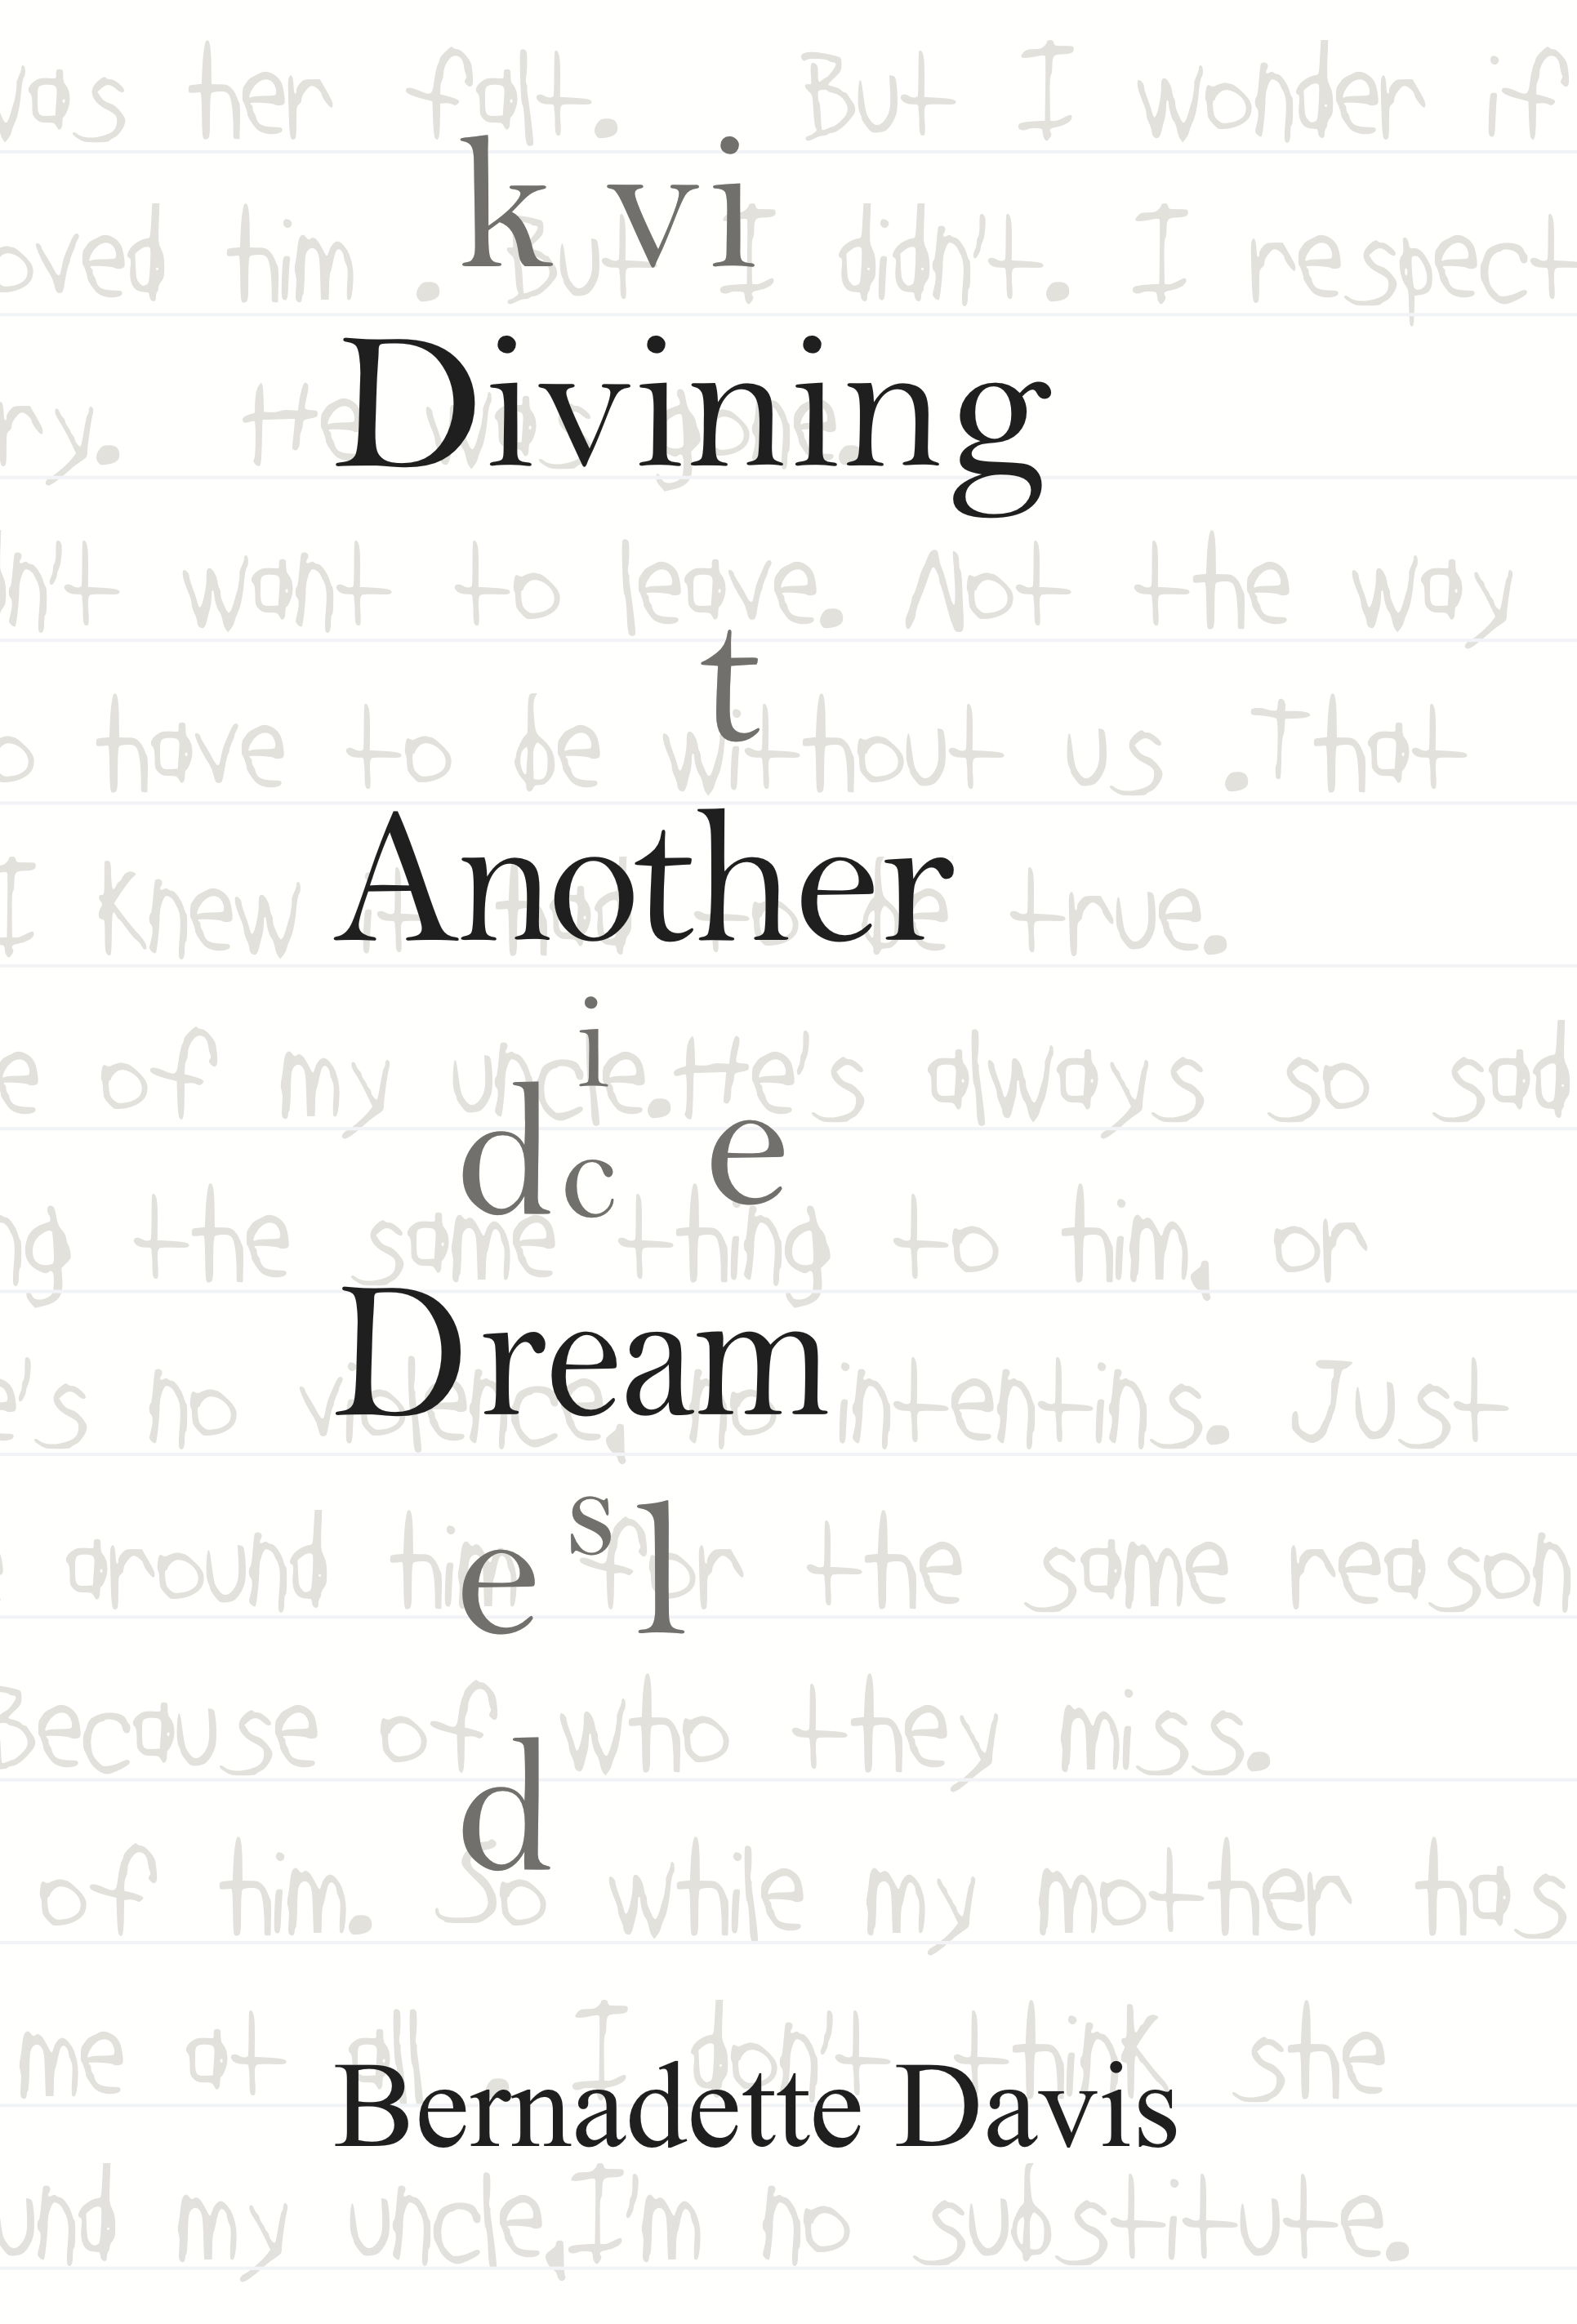 as her falt. But I wonder if
k v i
oved him. But I didn't. I respect
Divining
y. He was gone.
n't want to leave. Not the way
t
o have to be without us .That
Another
I knew it had to be true.
i
e of my uncle.He's always so sad
d c e
g the same thing to him, or
Dream
e's no violence, no intentins. Just
s
e l
around him for the same reason
Because of who they miss.
d
of him. So while my mother has
me at all. I don't think she
Bernadette Davis
und my uncle,I'm no substitute.